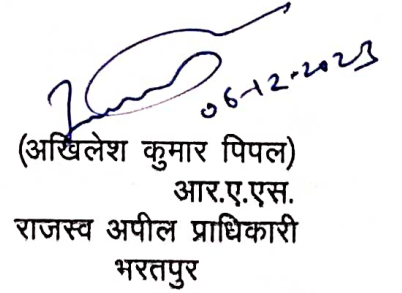 06-12-2023
(अखिलेश कुमार पिपल)
आर.ए.एस.
राजस्व अपील प्राधिकारी
भरतपुर